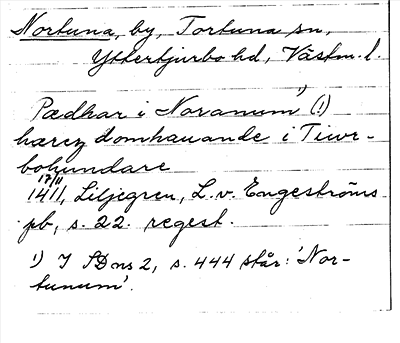 Nortuna, by, Tortuna sn,
Yttertjurbo hd, Västm. l.
Pædhar i Noranum¹⁾ (!)
hærez domhauande i Tiwr-
bohundare
17/11
1411, Liljegren, L. v. Engeströms
pb, s. 22. regest.
1) I SDns 2, s. 444 står: 'Nor-
tunum'.